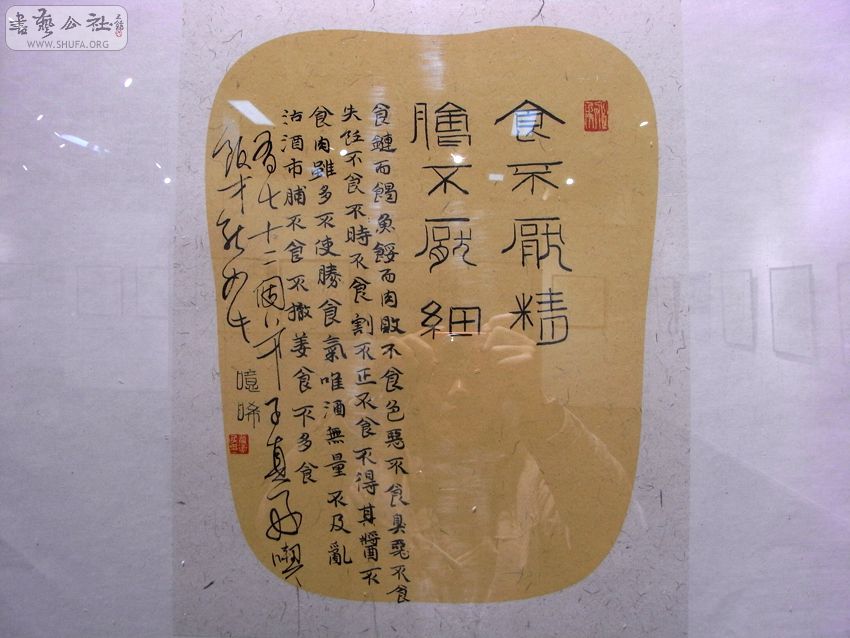 書藝公社
WWW.SHUFA.ORG
食不厭精
膾不厭細
食而餲魚餒而肉敗不食色惡不食臭惡不食
失飪不食不時不食割不正不食不得其醬不
食肉雖多不使勝食氣唯酒無量不及亂
沽酒市脯不食不撤姜食不多食
七十二個子真好喫
飯才
晞